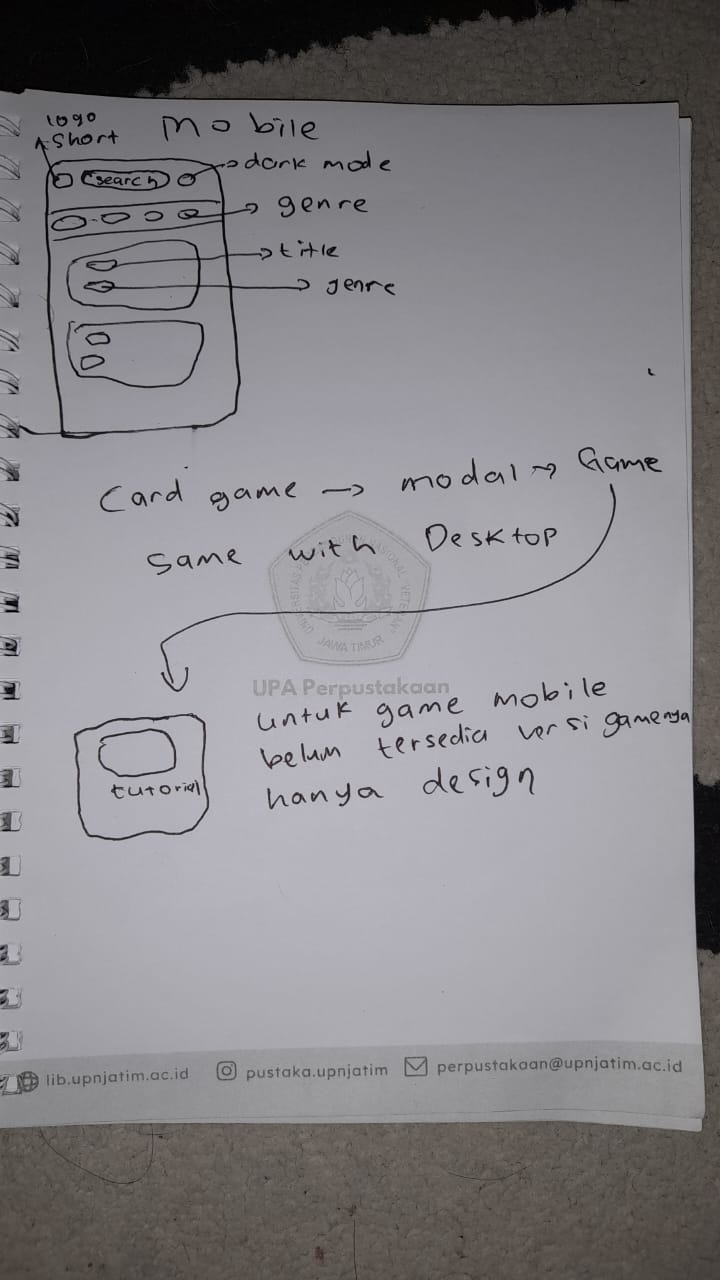 logo
short
mobile
search
dark mode
genre
title
genre
Card game → modal → Game
same with Desktop
UNIVERSITAS PEMBANGUNAN NASIONAL "VETERAN"
JAWA TIMUR
UPA Perpustakaan
untuk game mobile
belum tersedia versi gamenya
hanya design
tutorial
lib.upnjatim.ac.id pustaka.upnjatim perpustakaan@upnjatim.ac.id